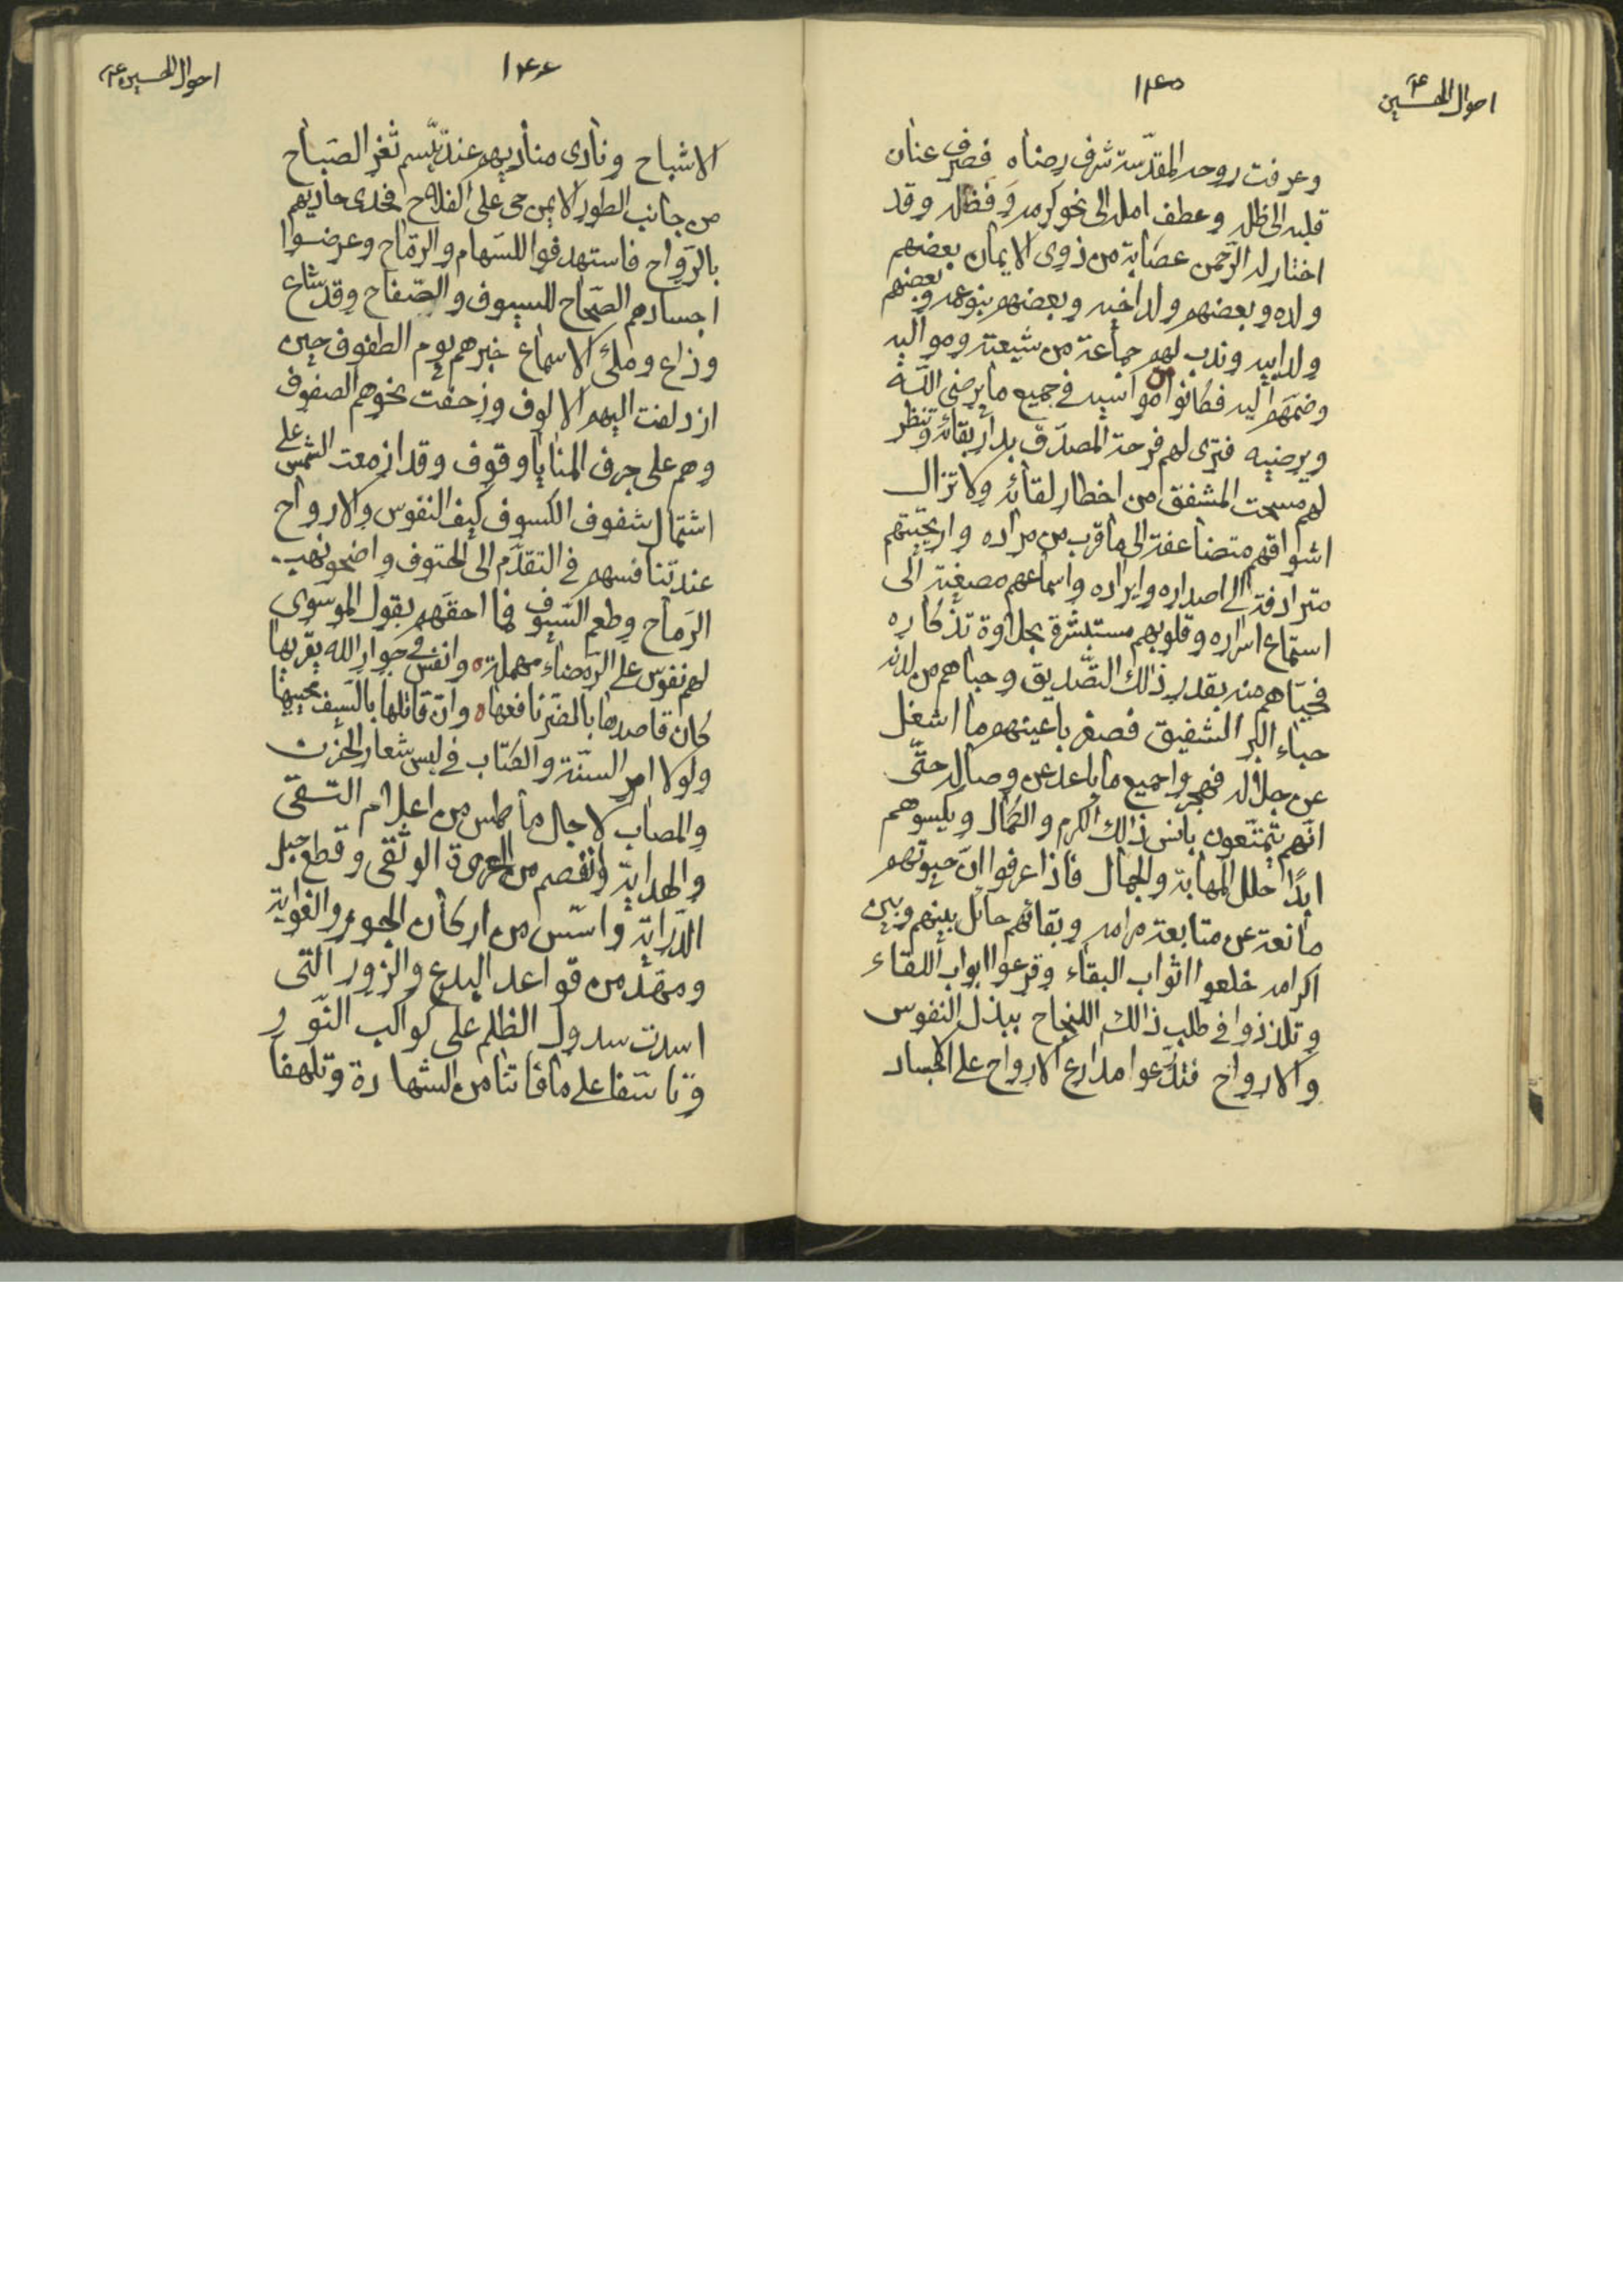 احوال الحسين ع
١٤٥
وعرفت روحه المقدّسة شرف رضاه فصرف عنان
قلبه الى ظله وعطف امله الى نحو كرمه وفضله وقد
اختار له الرّحمن عصابة من ذوى الايمان بعضهم
ولده وبعضهم ولد اخيه وبعضهم بنو عمه وبعضهم
ولد ابيه وندب لهم جماعة من شيعته ومواليه
وضمّهم اليه فكانوا مواسيه فى جميع ما يرضى اللّه
ويرضيه فترى لهم فرحة المصدّق بدار بقائه وتنظر
لهم مسحت المشفق من اخطار لقائه ولا تزال
اشواقهم متضاعفة الى ما قرب من مراده واريحيّتهم
مترادفة الى اصداره وايراده واسماعهم مصغية الى
استماع اسراره وقلوبهم مستبشرة بحلاوة تذكاره
فحيّاهم منه بقدر ذلك التّصديق وحباهم من لدنه
حباء البرّ الشفيق فصغر باعينهم ما اشغل
عن جلاله فهجروا جميع ما باعد عن وصاله حتّى
انّهم يتمتّعون بانس ذالك الكرم والكمال ويكسوهم
ابدًا حلل المهابة والجمال فاذا عرفوا انّ حيوتهم
مانعة عن متابعة مرامه وبقائهم حائل بينهم وبين
اكرامه خلعوا اثواب البقاء وقرعوا ابواب اللقاء
وتلذذوا فى طلب ذالك النجاح ببذل النفوس
والارواح فتدرّعوا مدارع الارواح على الاجساد
احوال الحسين ع
١٤٦
الاشباح ونادى مناديهم عند تبسّم ثغر الصّباح
من جانب الطور الايمن حى على الفلاح فحدى حاديهم
بالرّواح فاستهدفوا للسّهام والرّماح وعرضوا
اجسادهم الصّحاح للسيوف والصّفاح وقد شاع
وذاع وملئ الاسماع خبرهم يوم الطفوف حين
ازدلفت اليهم الالوف وزحفت نحوهم الصفوف
وهم على جرف المنايا وقوف وقد ازمعت الشمس على
اشتمال شفوف الكسوف كيف النفوس والارواح
عند تنافسهم فى التقدّم الى الحتوف واضحو نهب
الرّماح وطعم السّيوف فما احقّهم بقول الموسوى
لهم نفوس على الرّمضاء مهملة ٥ وانفس فى جوار الله يقربها
كان قاصدها بالضرّ نافعها ٥ وانّ قاتلها بالسّيف محييها
ولولا امر السنّة والكتاب فى لبس شعار الحزن
والمصاب لاجال ما طمس من اعلام التّقى
والهداية وانفصم من العروة الوثقى وقطع حبل
الدّراية واسّس من اركان الجور والغواية
ومهّد من قواعد البدع والزور التى
اسدت سدول الظلم على كواكب النّور
وتاسّفا على ما فاتنا من الشهادة وتلهفا